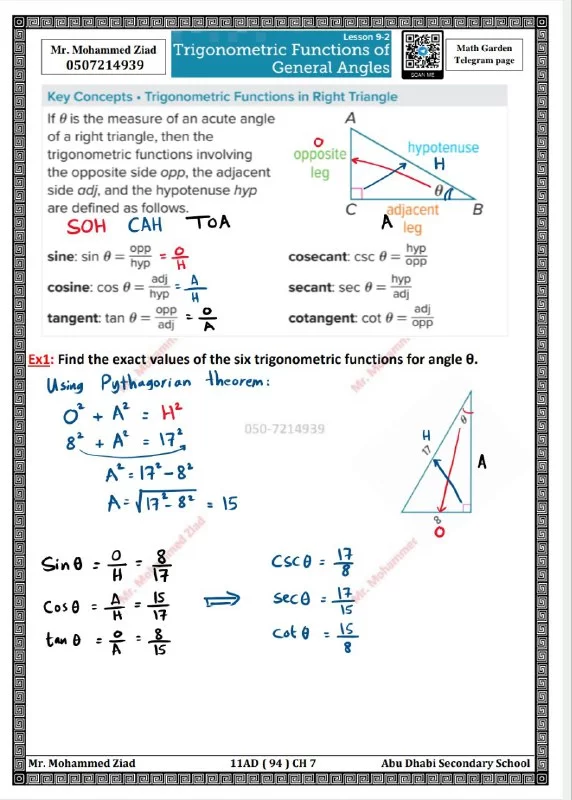 Mr. Mohammed Ziad
0507214939
Lesson 9-2
Trigonometric Functions of
General Angles
SCAN ME
Math Garden
Telegram page
Key Concepts • Trigonometric Functions in Right Triangle
If θ is the measure of an acute angle
of a right triangle, then the
trigonometric functions involving
the opposite side opp, the adjacent
side adj, and the hypotenuse hyp
are defined as follows.
A
O
opposite
leg
hypotenuse
H
θ
C
adjacent
B
A
leg
SOH CAH TOA
sine: sin θ = opp/hyp = O/H
cosecant: csc θ = hyp/opp
cosine: cos θ = adj/hyp = A/H
secant: sec θ = hyp/adj
tangent: tan θ = opp/adj = O/A
cotangent: cot θ = adj/opp
Ex1: Find the exact values of the six trigonometric functions for angle θ.
Using Pythagorian theorem:
O² + A² = H²
8² + A² = 17²
A² = 17² - 8²
A = √17² - 8² = 15
050-7214939
θ
H
17
A
8
O
Sin θ = O/H = 8/17
Csc θ = 17/8
Cos θ = A/H = 15/17
⇒
Sec θ = 17/15
tan θ = O/A = 8/15
Cot θ = 15/8
Mr. Mohammed Ziad
11AD ( 94 ) CH 7
Abu Dhabi Secondary School